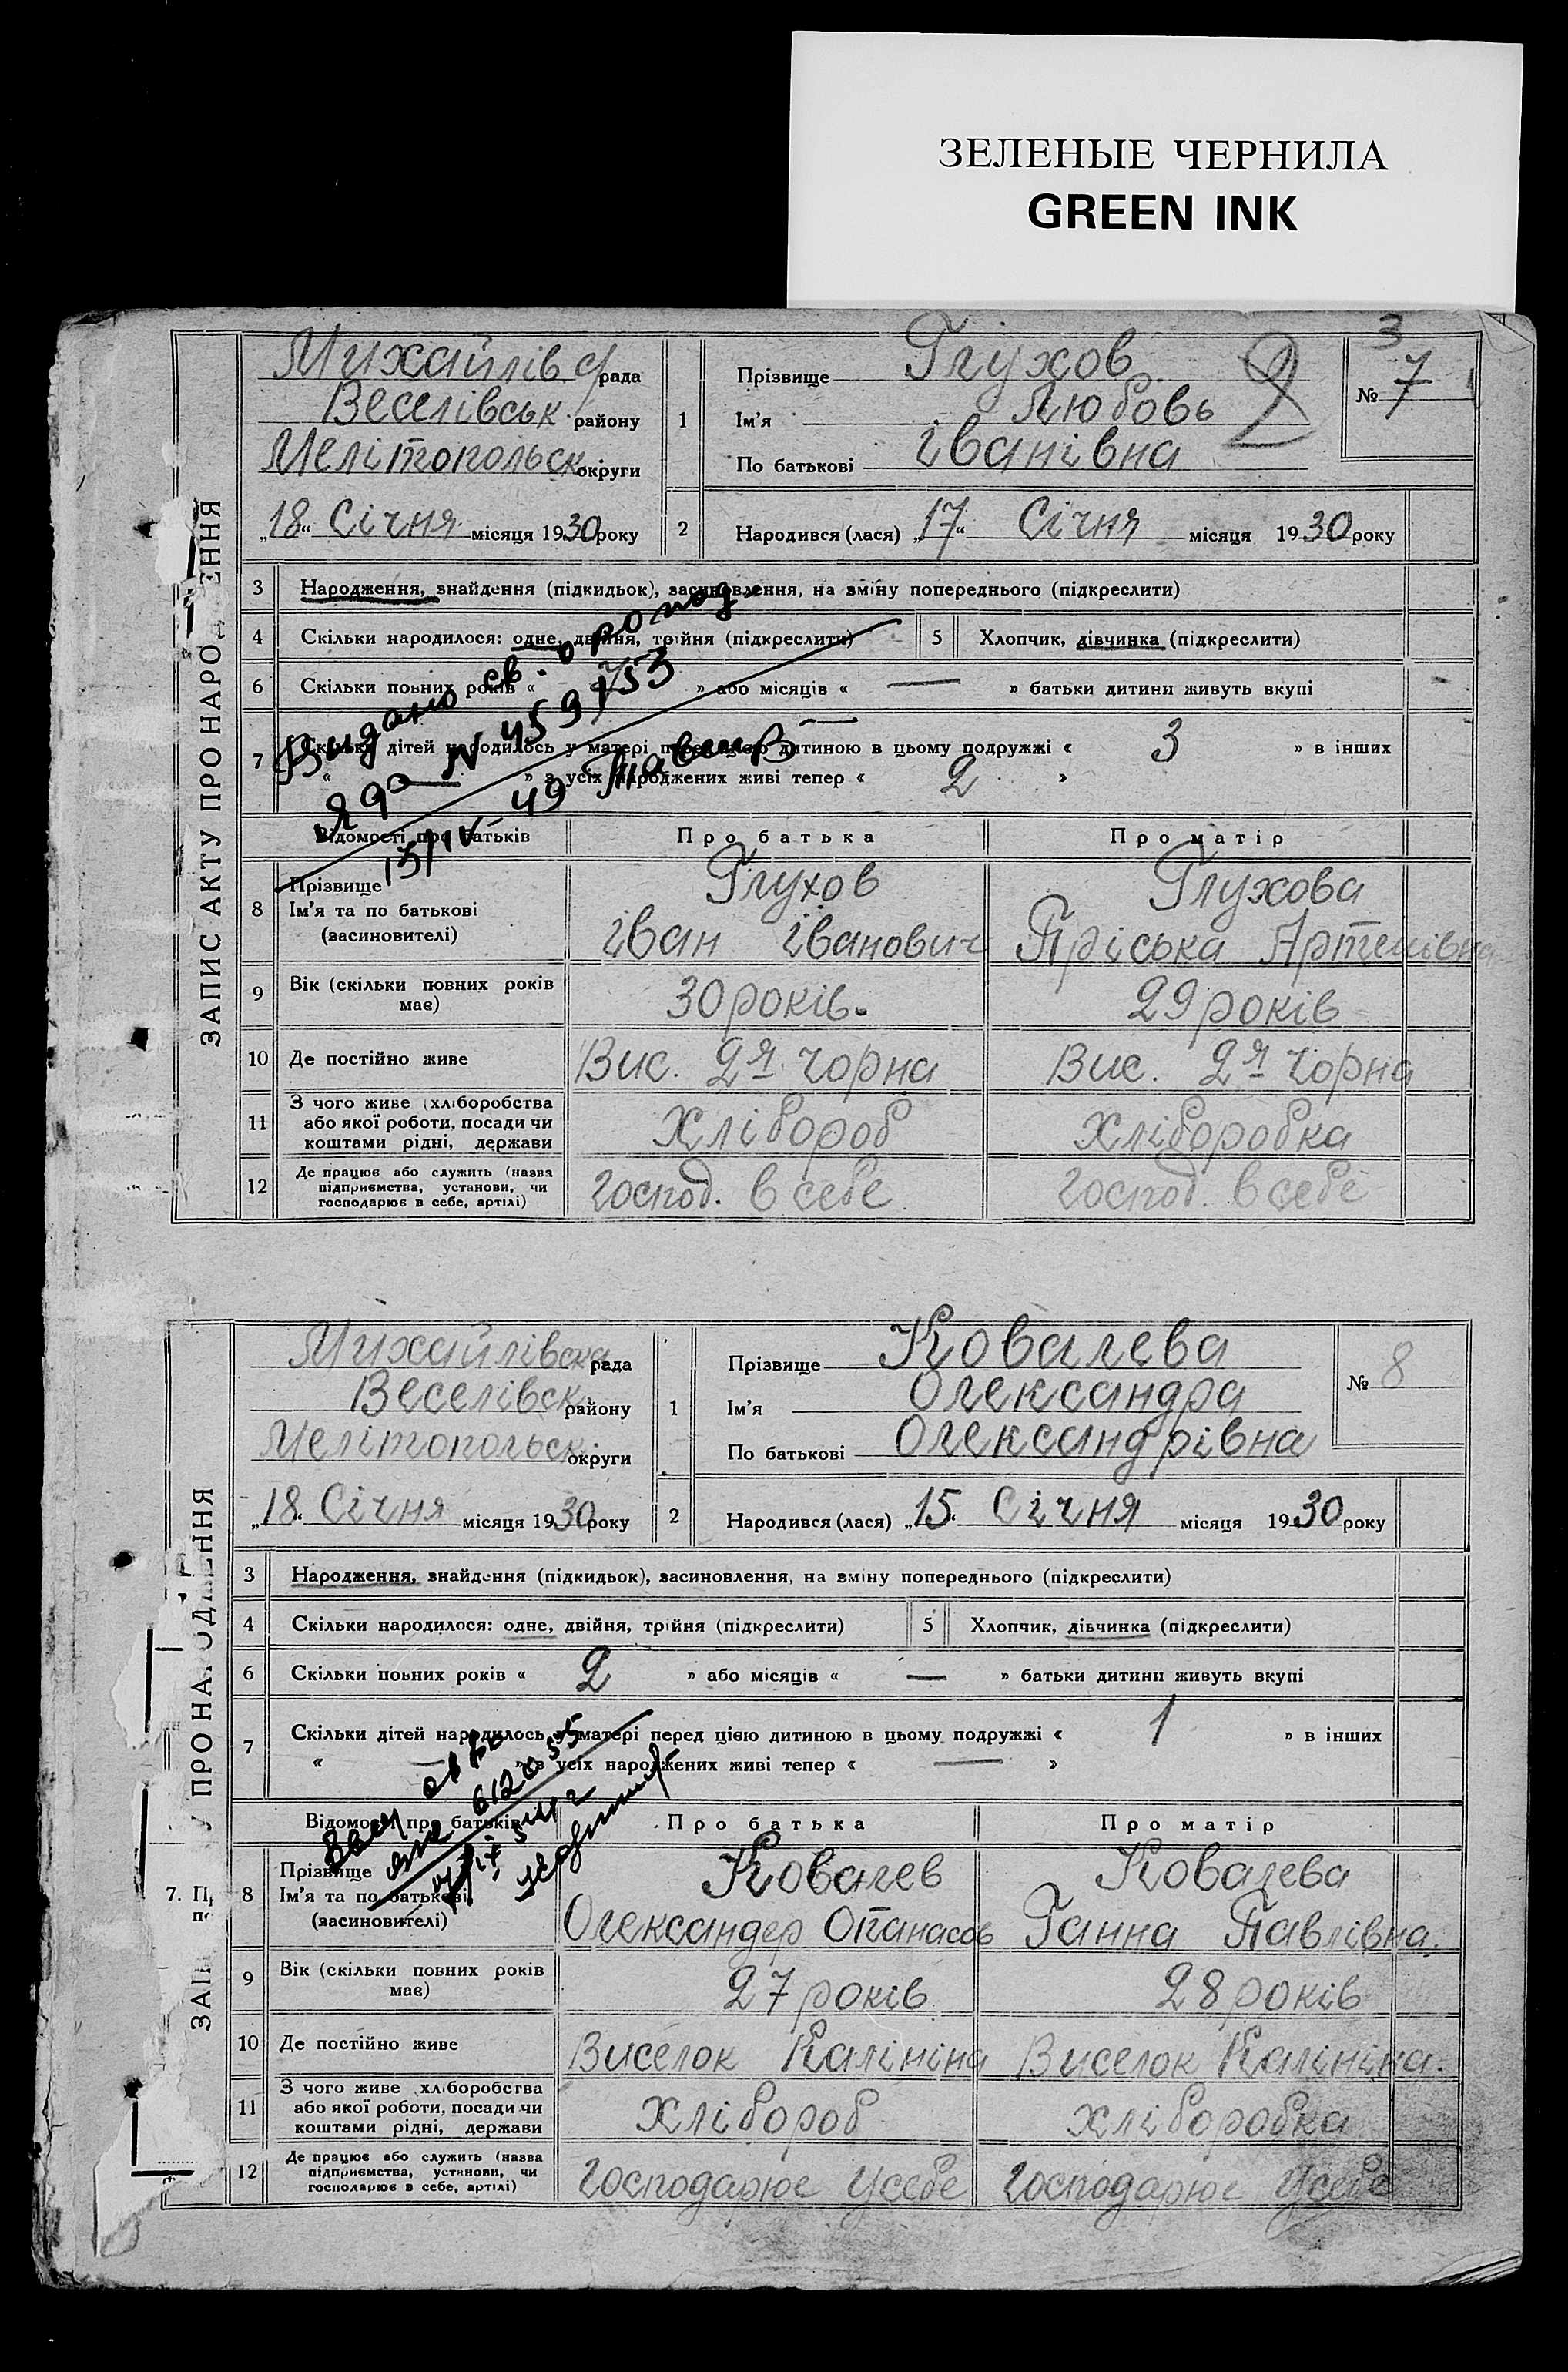 ЗЕЛЕНЫЕ ЧЕРНИЛА
GREEN INK
3
ЗАПИС АКТУ ПРО НАРОДЖЕННЯ
Михайлів с/рада
Веселівськ району
Мелітопольск округи
„18“ Січня місяця 1930 року
1
Прізвище Глухов
Ім'я Любовь
По батькові Іванівна
2
№ 7
2 Народився (лася) „17“ Січня місяця 1930 року
3 Народження, знайдення (підкидьок), засиновлення, на зміну попереднього (підкреслити)
4 Скільки народилося: одне, двійня, трійня (підкреслити) 5 Хлопчик, дівчинка (підкреслити)
6 Скільки повних років « » або місяців « — » батьки дитини живуть вкупі
7 Скільки дітей народилось у матері перед цією дитиною в цьому подружжі « 3 » в інших
« — » з усіх народжених живі тепер « 2 »
Видано св. о рожд.
N 459753
15/IV 49
Відомості про батьків Про батька Про матір
8 Прізвище Глухов Глухова
Ім'я та по батькові (засиновителі) Іван Іванович Пріська Артемівна
9 Вік (скільки повних років має) 30 років. 29 років
10 Де постійно живе Вис. 2я Чорна Вис. 2я Чорна
11 З чого живе (хліборобства або якої роботи, посади чи коштами рідні, держави Хлібороб Хліборобка
12 Де працює або служить (назва підприємства, установи, чи господарює в себе, артілі) Господ. в себе Господ. в себе
Михайлівска рада
Веселівск. району
Мелітопольск. округи
„18“ Січня місяця 1930 року
1
Прізвище Ковалева
Ім'я Олександра
По батькові Олександрівна
№ 8
2 Народився (лася) „15“ Січня місяця 1930 року
3 Народження, знайдення (підкидьок), засиновлення, на зміну попереднього (підкреслити)
4 Скільки народилося: одне, двійня, трійня (підкреслити) 5 Хлопчик, дівчинка (підкреслити)
6 Скільки повних років « 2 » або місяців « — » батьки дитини живуть вкупі
7 Скільки дітей народилось у матері перед цією дитиною в цьому подружжі « 1 » в інших
« — » з усіх народжених живі тепер « — »
Відомості про батьків Про батька Про матір
8 Прізвище Ковалев Ковалева
Ім'я та по батькові (засиновителі) Олександер Опанасов Ганна Павлівна.
9 Вік (скільки повних років має) 27 років 28 років
10 Де постійно живе Виселок Калініна Виселок Калініна.
11 З чого живе хліборобства або якої роботи, посади чи коштами рідні, держави Хлібороб Хліборобка
12 Де працює або служить (назва підприємства, установи, чи господарює в себе, артілі) Господарює у себе Господарює у себе